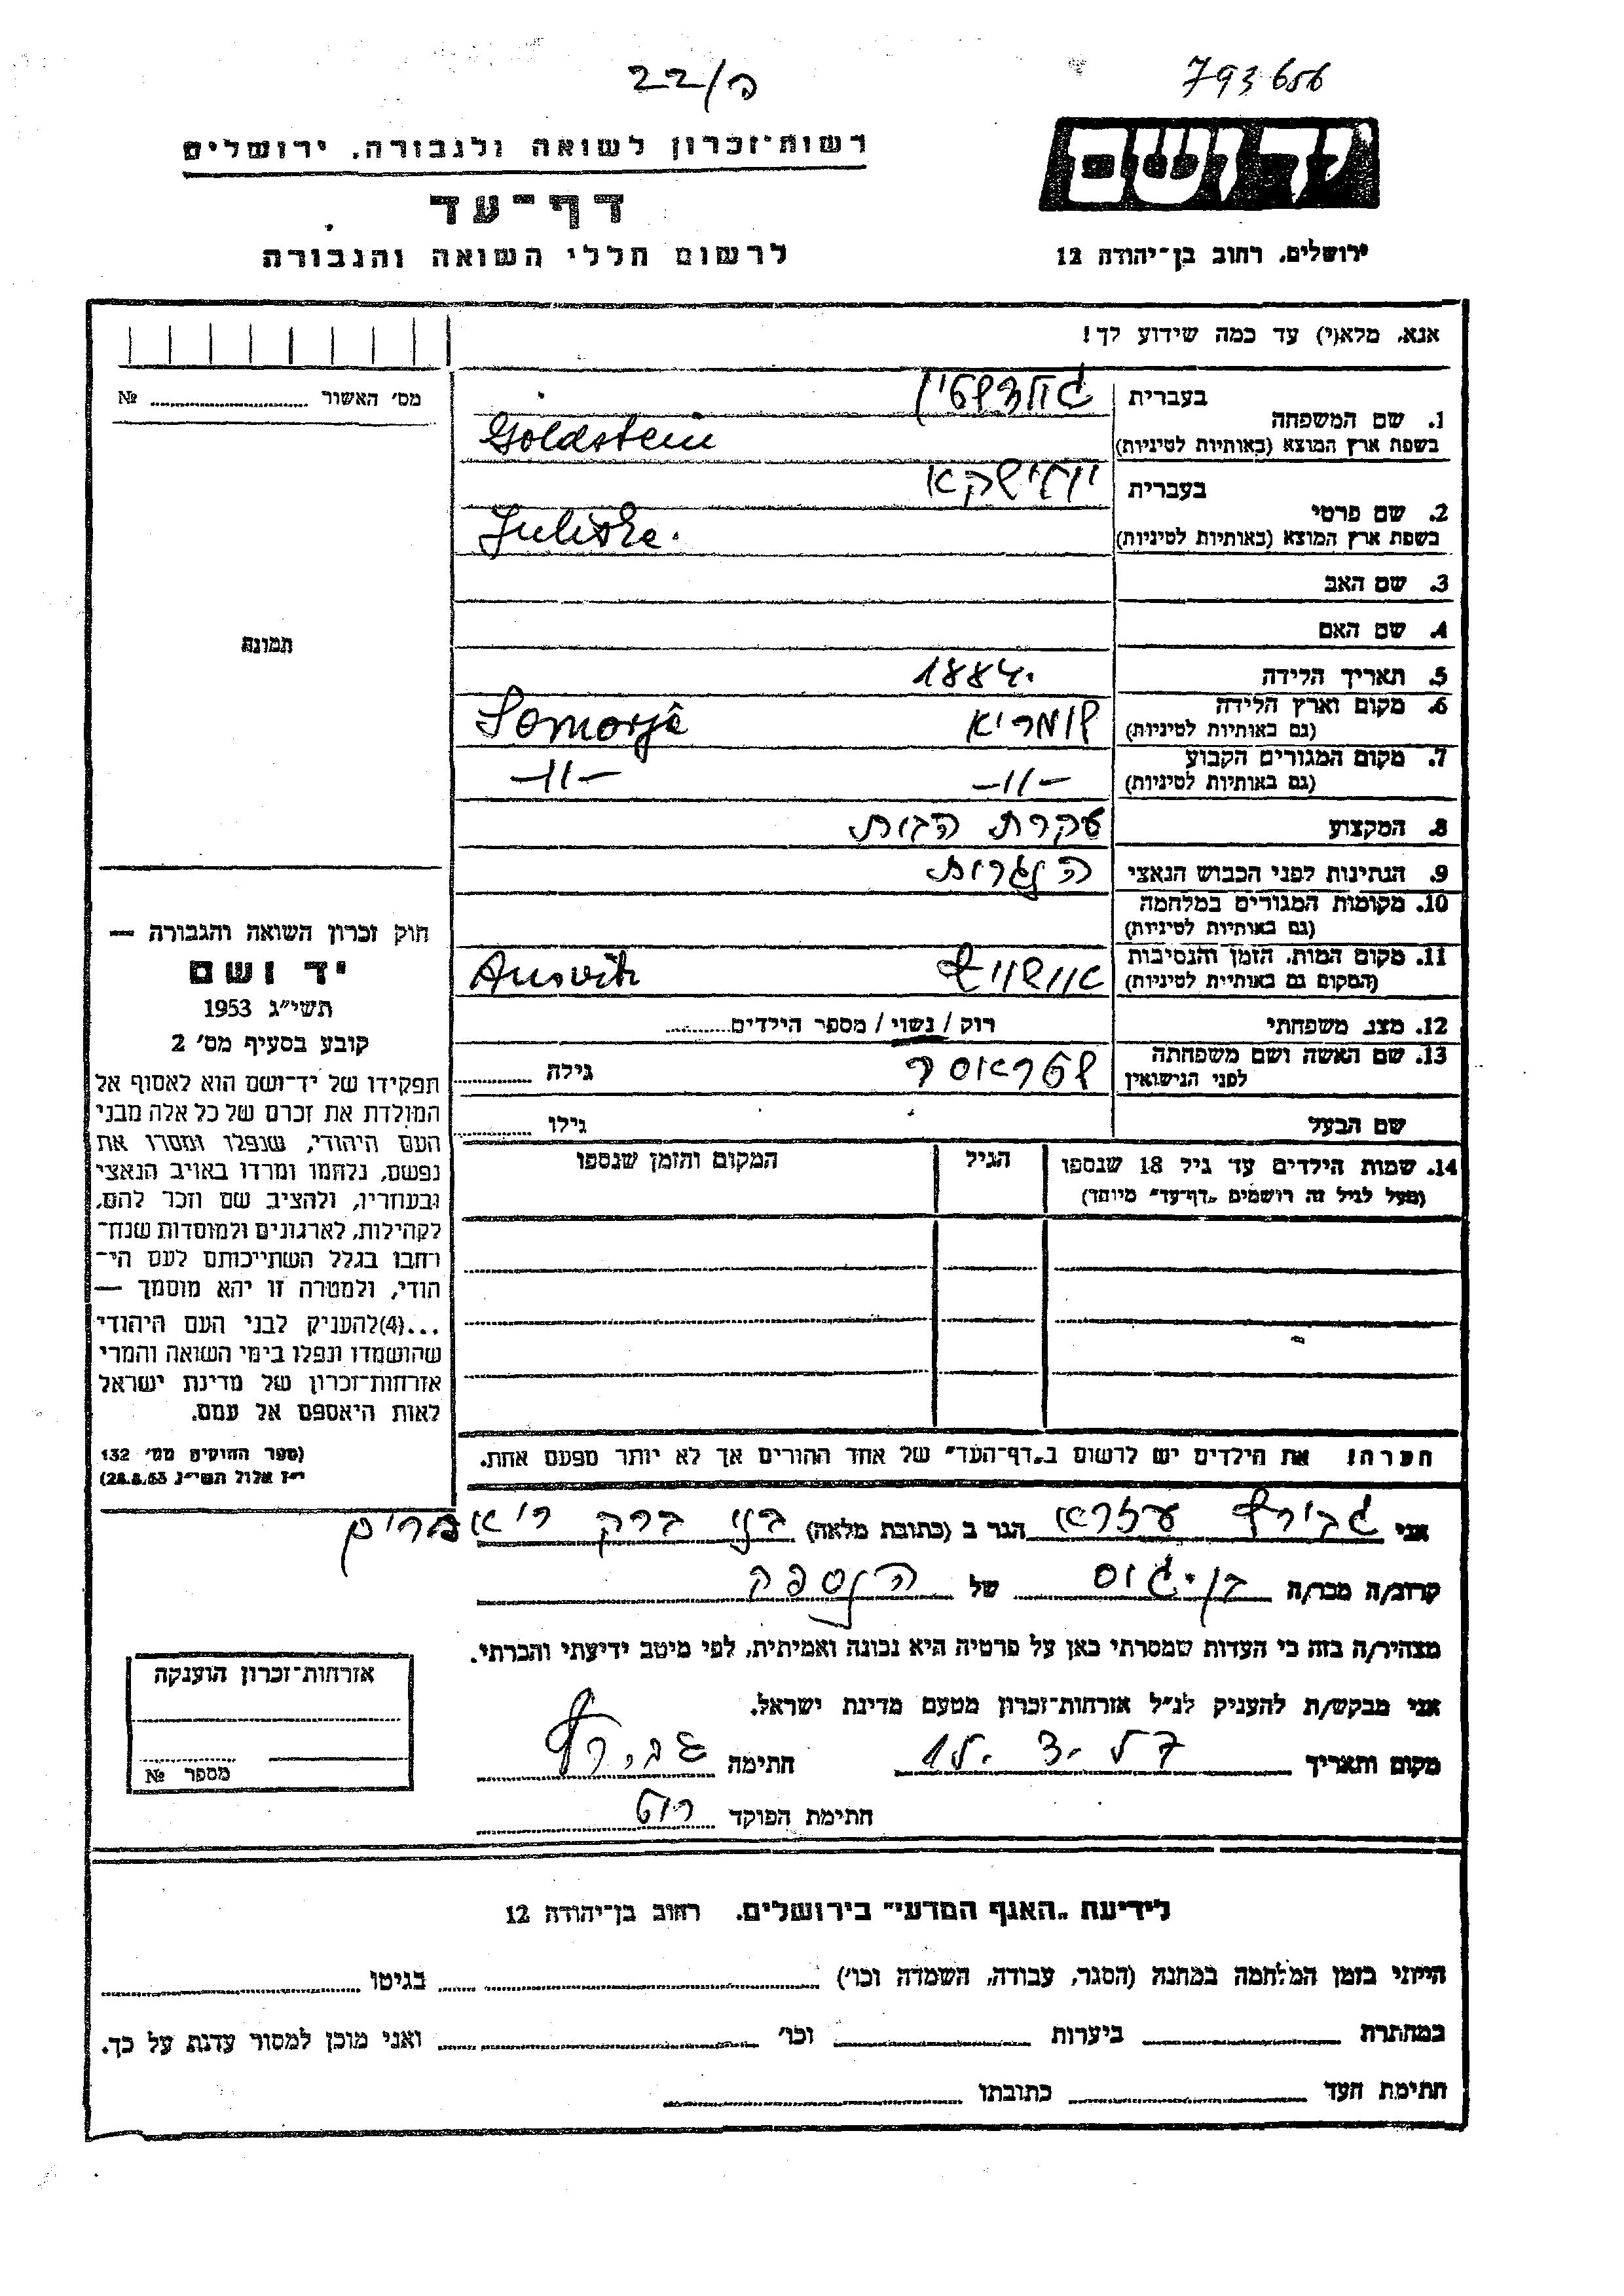 22/ק
793656
רשות־זכרון לשואה ולגבורה, ירושלים
דף־עד
לרשום חללי השואה והגבורה
יד ושם
ירושלים, רחוב בן־יהודה 12
אנא, מלא(י) עד כמה שידוע לך!
מס׳ האשור № 
1. שם המשפחה
בעברית גולדשטיין
בשפת ארץ המוצא (באותיות לטיניות) Goldstein
2. שם פרטי
בעברית יולישקא
בשפת ארץ המוצא (באותיות לטיניות) Juliske.
3. שם האב
4. שם האם
5. תאריך הלידה 1884.
6. מקום וארץ הלידה
(גם באותיות לטיניות) שומריא Somorja
7. מקום המגורים הקבוע
(גם באותיות לטיניות) –11– –11–
8. המקצוע עקרת הבית
9. הנתינות לפני הכבוש הנאצי הונגרית
10. מקומות המגורים במלחמה
(גם באותיות לטיניות)
11. מקום המות, הזמן והנסיבות
(המקום גם באותיית לטיניות) אוישויץ Ausvitz
12. מצב משפחתי רוק / נשוי / מספר הילדים
13. שם האשה ושם משפחתה
לפני הנישואין שטראוסר גילה
שם הבעל גילו
14. שמות הילדים עד גיל 18 שנספו
(מעל לגיל זה רושמים „דף־עד״ מיוחד)
הגיל
המקום והזמן שנספו
הערה! את הילדים יש לרשום ב„דף־העד״ של אחד ההורים אך לא יותר מפעם אחת.
תמונה
חוק זכרון השואה והגבורה —
יד ושם
תשי״ג 1953
קובע בסעיף מס׳ 2
תפקידו של יד־ושם הוא לאסוף אל
המולדת את זכרם של כל אלה מבני
העם היהודי, שנפלו ומסרו את
נפשם, נלחמו ומרדו באויב הנאצי
ובעוזריו, ולהציב שם וזכר להם,
לקהילות, לארגונים ולמוסדות שנח־
רחבו בגלל השתייכותם לעם הי־
הודי, ולמטרה זו יהא מוסמך —
...(4)להעניק לבני העם היהודי
שהושמדו ונפלו בימי השואה והמרי
אזרחות־זכרון של מדינת ישראל
לאות היאספם אל עמם.
(ספר החוקים מס׳ 132
י״ז אלול תשי״ג 28.8.53)
אני עזרא הגר ב (כתובת מלאה) בני ברק
קרוב/ה מכר/ה בן־ של הנספה
מצהיר/ה בזה כי העדות שמסרתי כאן על פרטיה היא נכונה ואמיתית, לפי מיטב ידיעתי והכרתי.
אני מבקש/ת להעניק לנ״ל אזרחות־זכרון מטעם מדינת ישראל.
מקום ותאריך חתימה
חתימת הפוקד
אזרחות־זכרון הוענקה
מספר №
לידיעת „האגף המדעי״ בירושלים, רחוב בן־יהודה 12
הייתי בזמן המלחמה במחנה (הסגר, עבודה, השמדה וכו׳) בגיטו
במחתרת ביערות וכו׳ ואני מוכן למסור עדות על כך.
חתימת העד כתובתו